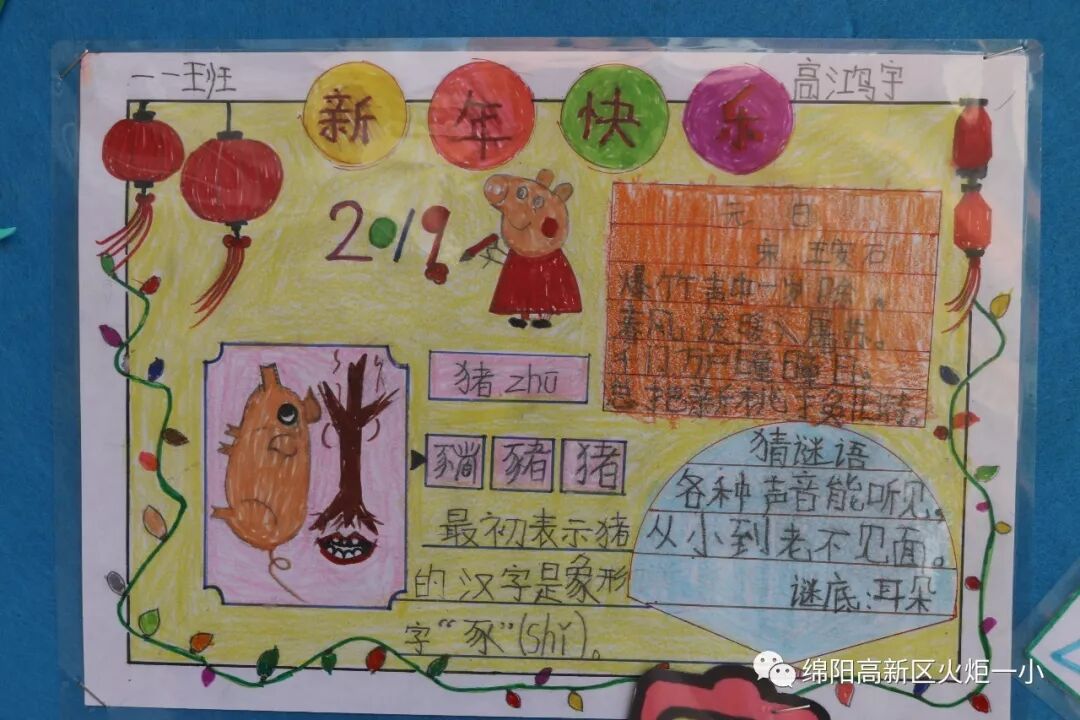 一一班
高江鸿宇
新年快乐
2019
元日
宋 王安石
爆竹声中一岁除。
春风送暖入屠苏。
千门万户曈曈日。
总把新桃换旧符。
猪 zhū
豬 猪
最初表示猪
的汉字是象形
字“豕”(Shǐ)。
猜谜语
各种声音能听见。
从小到老不见面。
谜底:耳朵
绵阳高新区火炬一小